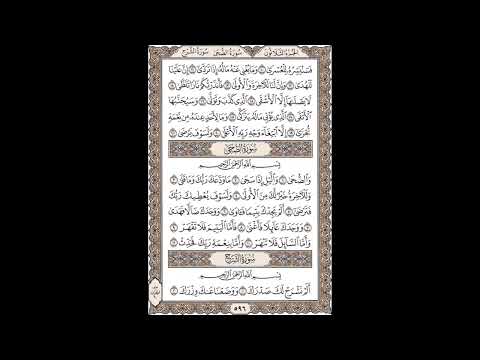 الجزء الثلاثون سورة الضحى سورة الشرح
فَسَنُيَسِّرُهُۥ لِلْعُسْرَىٰ ١٠ وَمَا يُغْنِى عَنْهُ مَالُهُۥٓ إِذَا تَرَدَّىٰٓ ١١ إِنَّ عَلَيْنَا
لَلْهُدَىٰ ١٢ وَإِنَّ لَنَا لَلْءَاخِرَةَ وَٱلْأُولَىٰ ١٣ فَأَنذَرْتُكُمْ نَارًا تَلَظَّىٰ ١٤
لَا يَصْلَىٰهَآ إِلَّا ٱلْأَشْقَى ١٥ ٱلَّذِى كَذَّبَ وَتَوَلَّىٰ ١٦ وَسَيُجَنَّبُهَا
ٱلْأَتْقَى ١٧ ٱلَّذِى يُؤْتِى مَالَهُۥ يَتَزَكَّىٰ ١٨ وَمَا لِأَحَدٍ عِندَهُۥ مِن نِّعْمَةٍ
تُجْزَىٰٓ ١٩ إِلَّا ٱبْتِغَآءَ وَجْهِ رَبِّهِ ٱلْأَعْلَىٰ ٢٠ وَلَسَوْفَ يَرْضَىٰ ٢١
سورة الضحى
بِسْمِ ٱللَّهِ ٱلرَّحْمَٰنِ ٱلرَّحِيمِ
وَٱلضُّحَىٰ ١ وَٱلَّيْلِ إِذَا سَجَىٰ ٢ مَا وَدَّعَكَ رَبُّكَ وَمَا قَلَىٰ ٣
وَلَلْءَاخِرَةُ خَيْرٌ لَّكَ مِنَ ٱلْأُولَىٰ ٤ وَلَسَوْفَ يُعْطِيكَ رَبُّكَ
فَتَرْضَىٰٓ ٥ أَلَمْ يَجِدْكَ يَتِيمًا فَـَٔاوَىٰ ٦ وَوَجَدَكَ ضَآلًّا فَهَدَىٰ
٧ وَوَجَدَكَ عَآئِلًا فَأَغْنَىٰ ٨ فَأَمَّا ٱلْيَتِيمَ فَلَا تَقْهَرْ ٩
وَأَمَّا ٱلسَّآئِلَ فَلَا تَنْهَرْ ١٠ وَأَمَّا بِنِعْمَةِ رَبِّكَ فَحَدِّثْ ١١
سورة الشرح
بِسْمِ ٱللَّهِ ٱلرَّحْمَٰنِ ٱلرَّحِيمِ
أَلَمْ نَشْرَحْ لَكَ صَدْرَكَ ١ وَوَضَعْنَا عَنكَ وِزْرَكَ ٢
٥٩٦